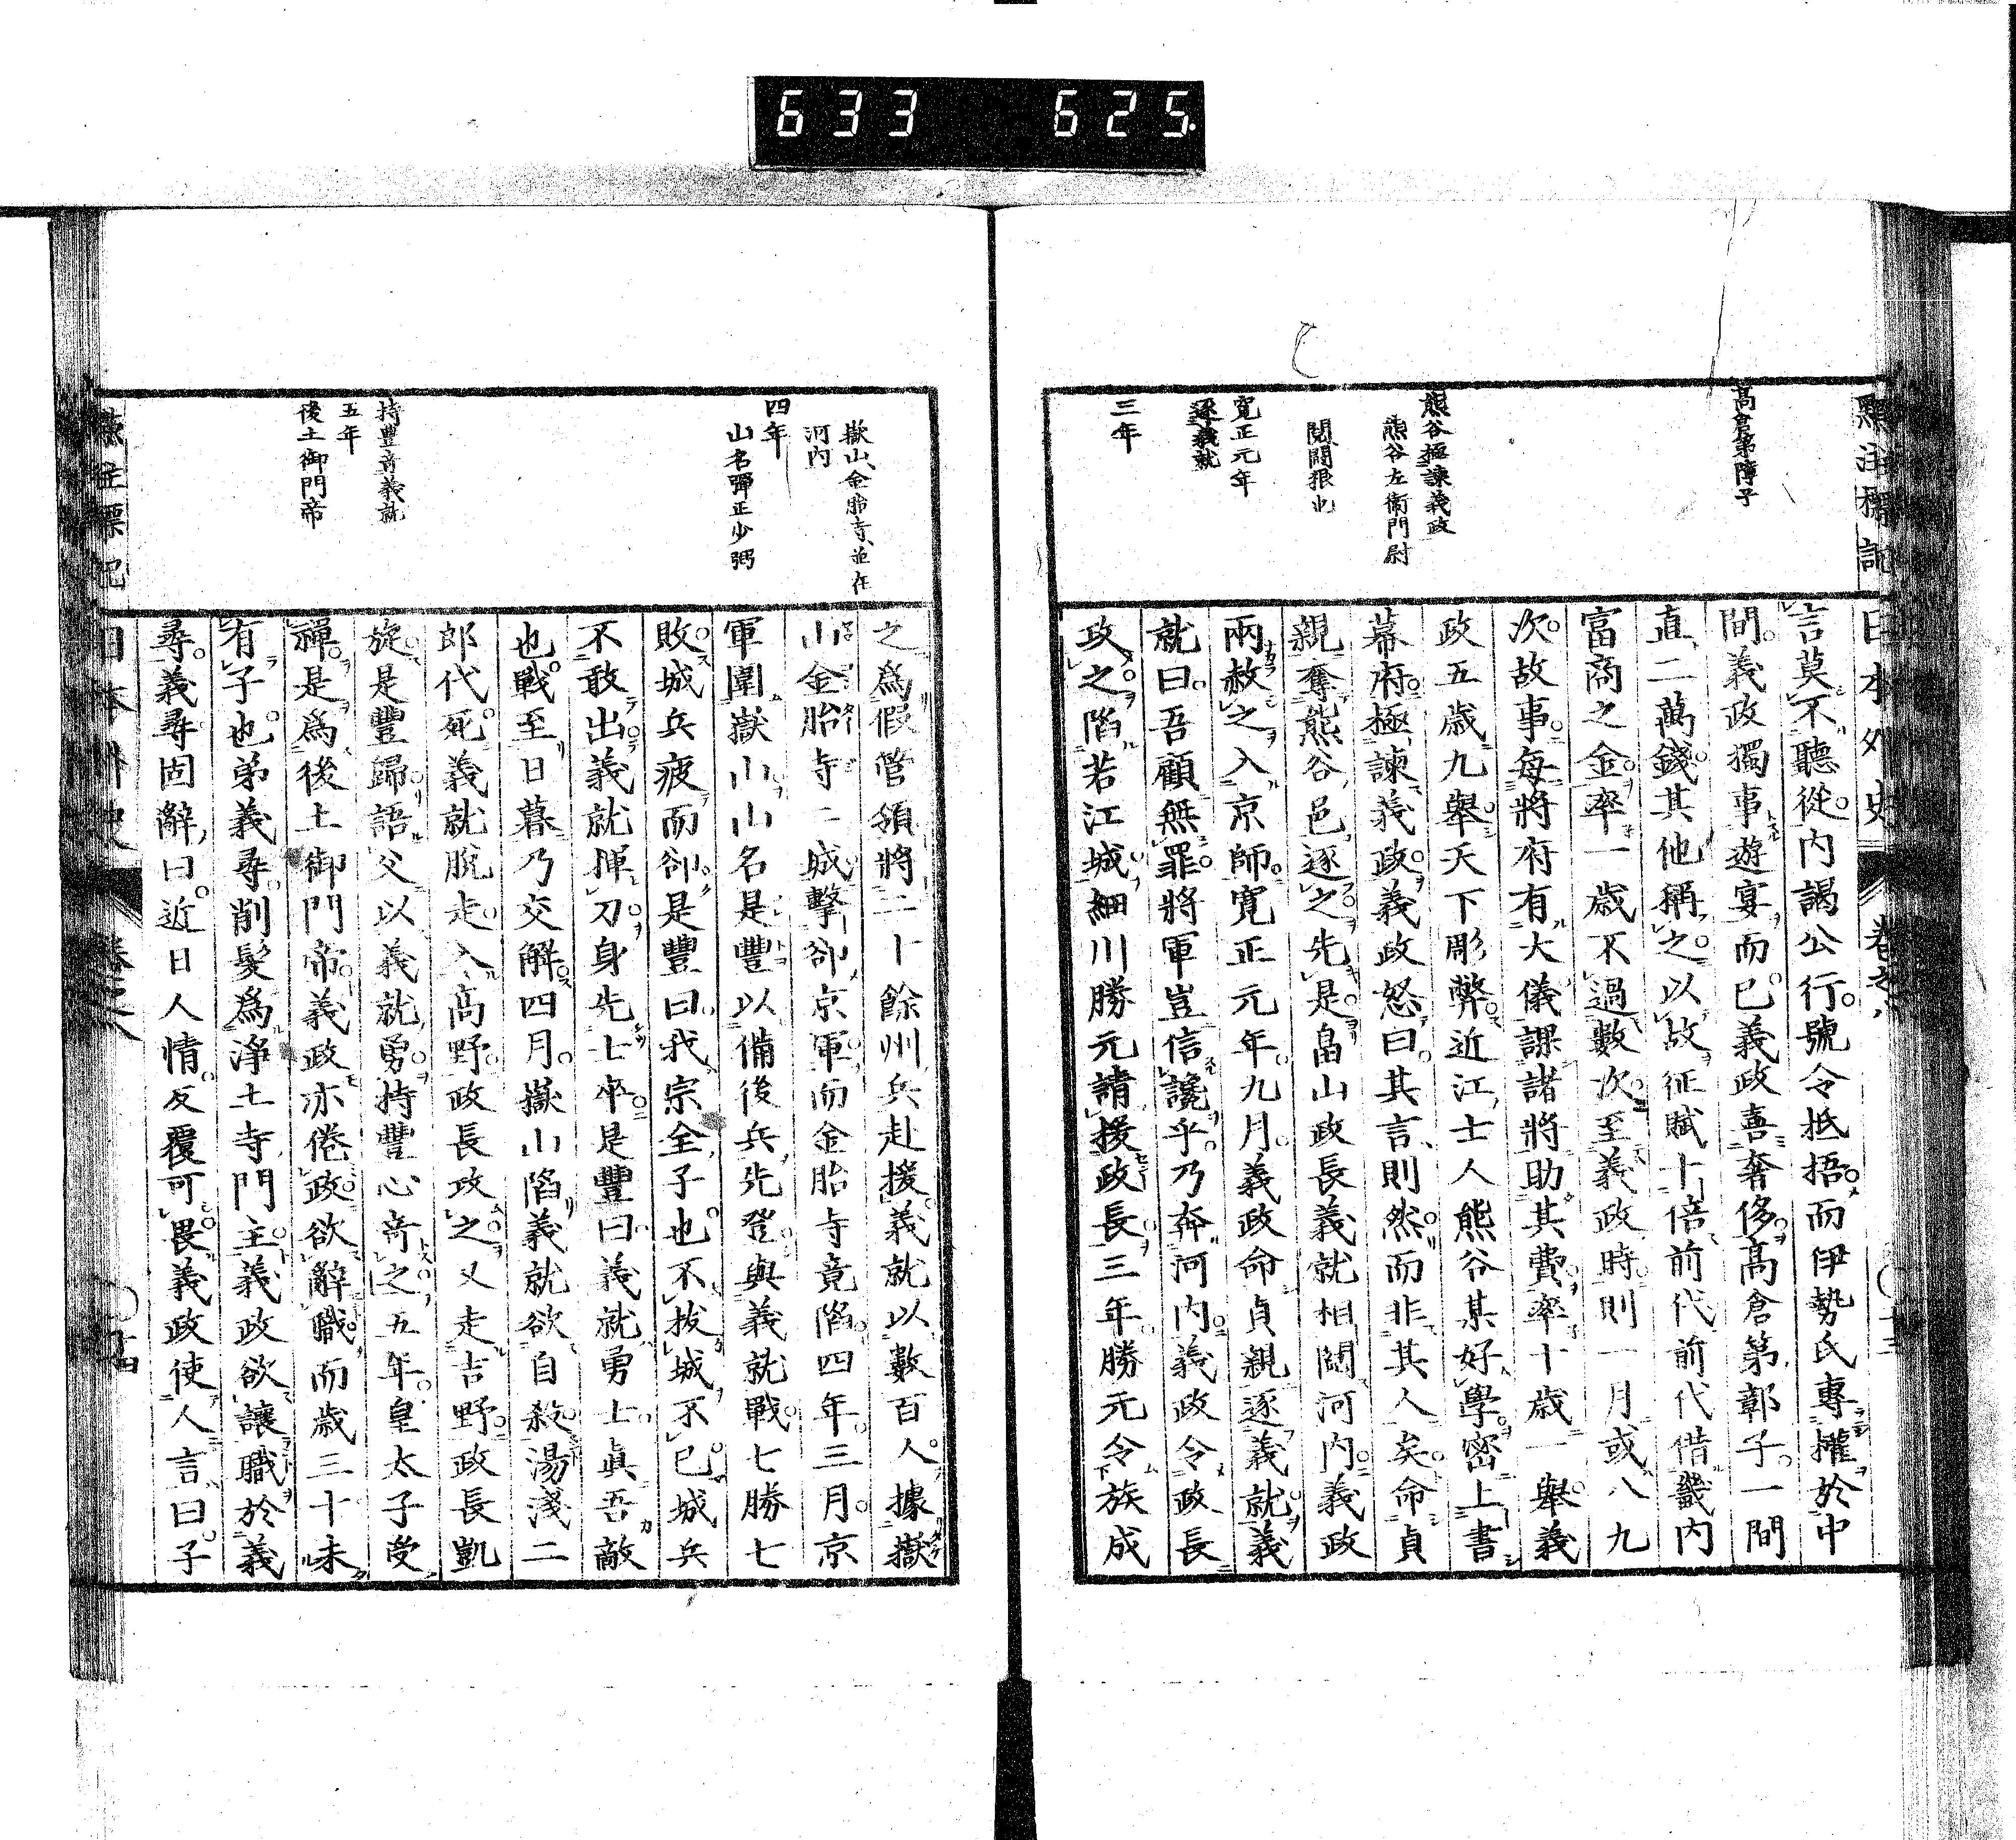 633 625
標註標記 日本外史 卷之八 ○十三
高倉第障子
熊谷極諫義政
熊谷左衞門尉
鬩鬪狠也
寬正元年
逐義就
三年
言莫不聽從內謁公行號令抵捂而伊勢氏專權於中
間義政獨事遊宴而已義政喜奢侈高倉第鄣子一間
直二萬錢其他稱之以故征賦十倍前代前代借畿內
富商之金率一歲不過數次至義政時則一月或八九
次故事每將府有大儀課諸將助其費率十歲一舉義
政五歲九舉天下彫弊近江士人熊谷某好學密上書
幕府極諫義政義政怒曰其言則然而非其人矣命貞
親奪熊谷邑逐之先是畠山政長義就相鬩河內義政
兩赦之入京師寬正元年九月義政命貞親逐義就義
就曰吾顧無罪將軍豈信讒乎乃奔河內義政令政長
政之陷若江城細川勝元請援政長三年勝元令族成
嶽山、金胎寺、並在
河內
四年
山名彈正少弼
持豐竒義就
五年
後土御門帝
之爲假管領將二十餘州兵赴援義就以數百人據嶽
山金胎寺二城擊卻京軍而金胎寺竟陷四年三月京
軍圍嶽山山名是豐以備後兵先登與義就戰七勝七
敗城兵疲而卻是豐曰我宗全子也不拔城不已城兵
不敢出義就揮刀身先士卒是豐曰義就勇士眞吾敵
也戰至日暮乃交解四月嶽山陷義就欲自殺湯淺二
郎代死義就脫走入高野政長攻之又走吉野政長凱
旋是豐歸語父以義就勇持豐心竒之五年皇太子受
禪是爲後土御門帝義政亦倦政欲辭職而歲三十未
有子也弟義尋削髮爲淨土寺門主義政欲讓職於義
尋義尋固辭曰近日人情反覆可畏義政使人言曰子
標註標記 日本外史 卷之八 ○十四